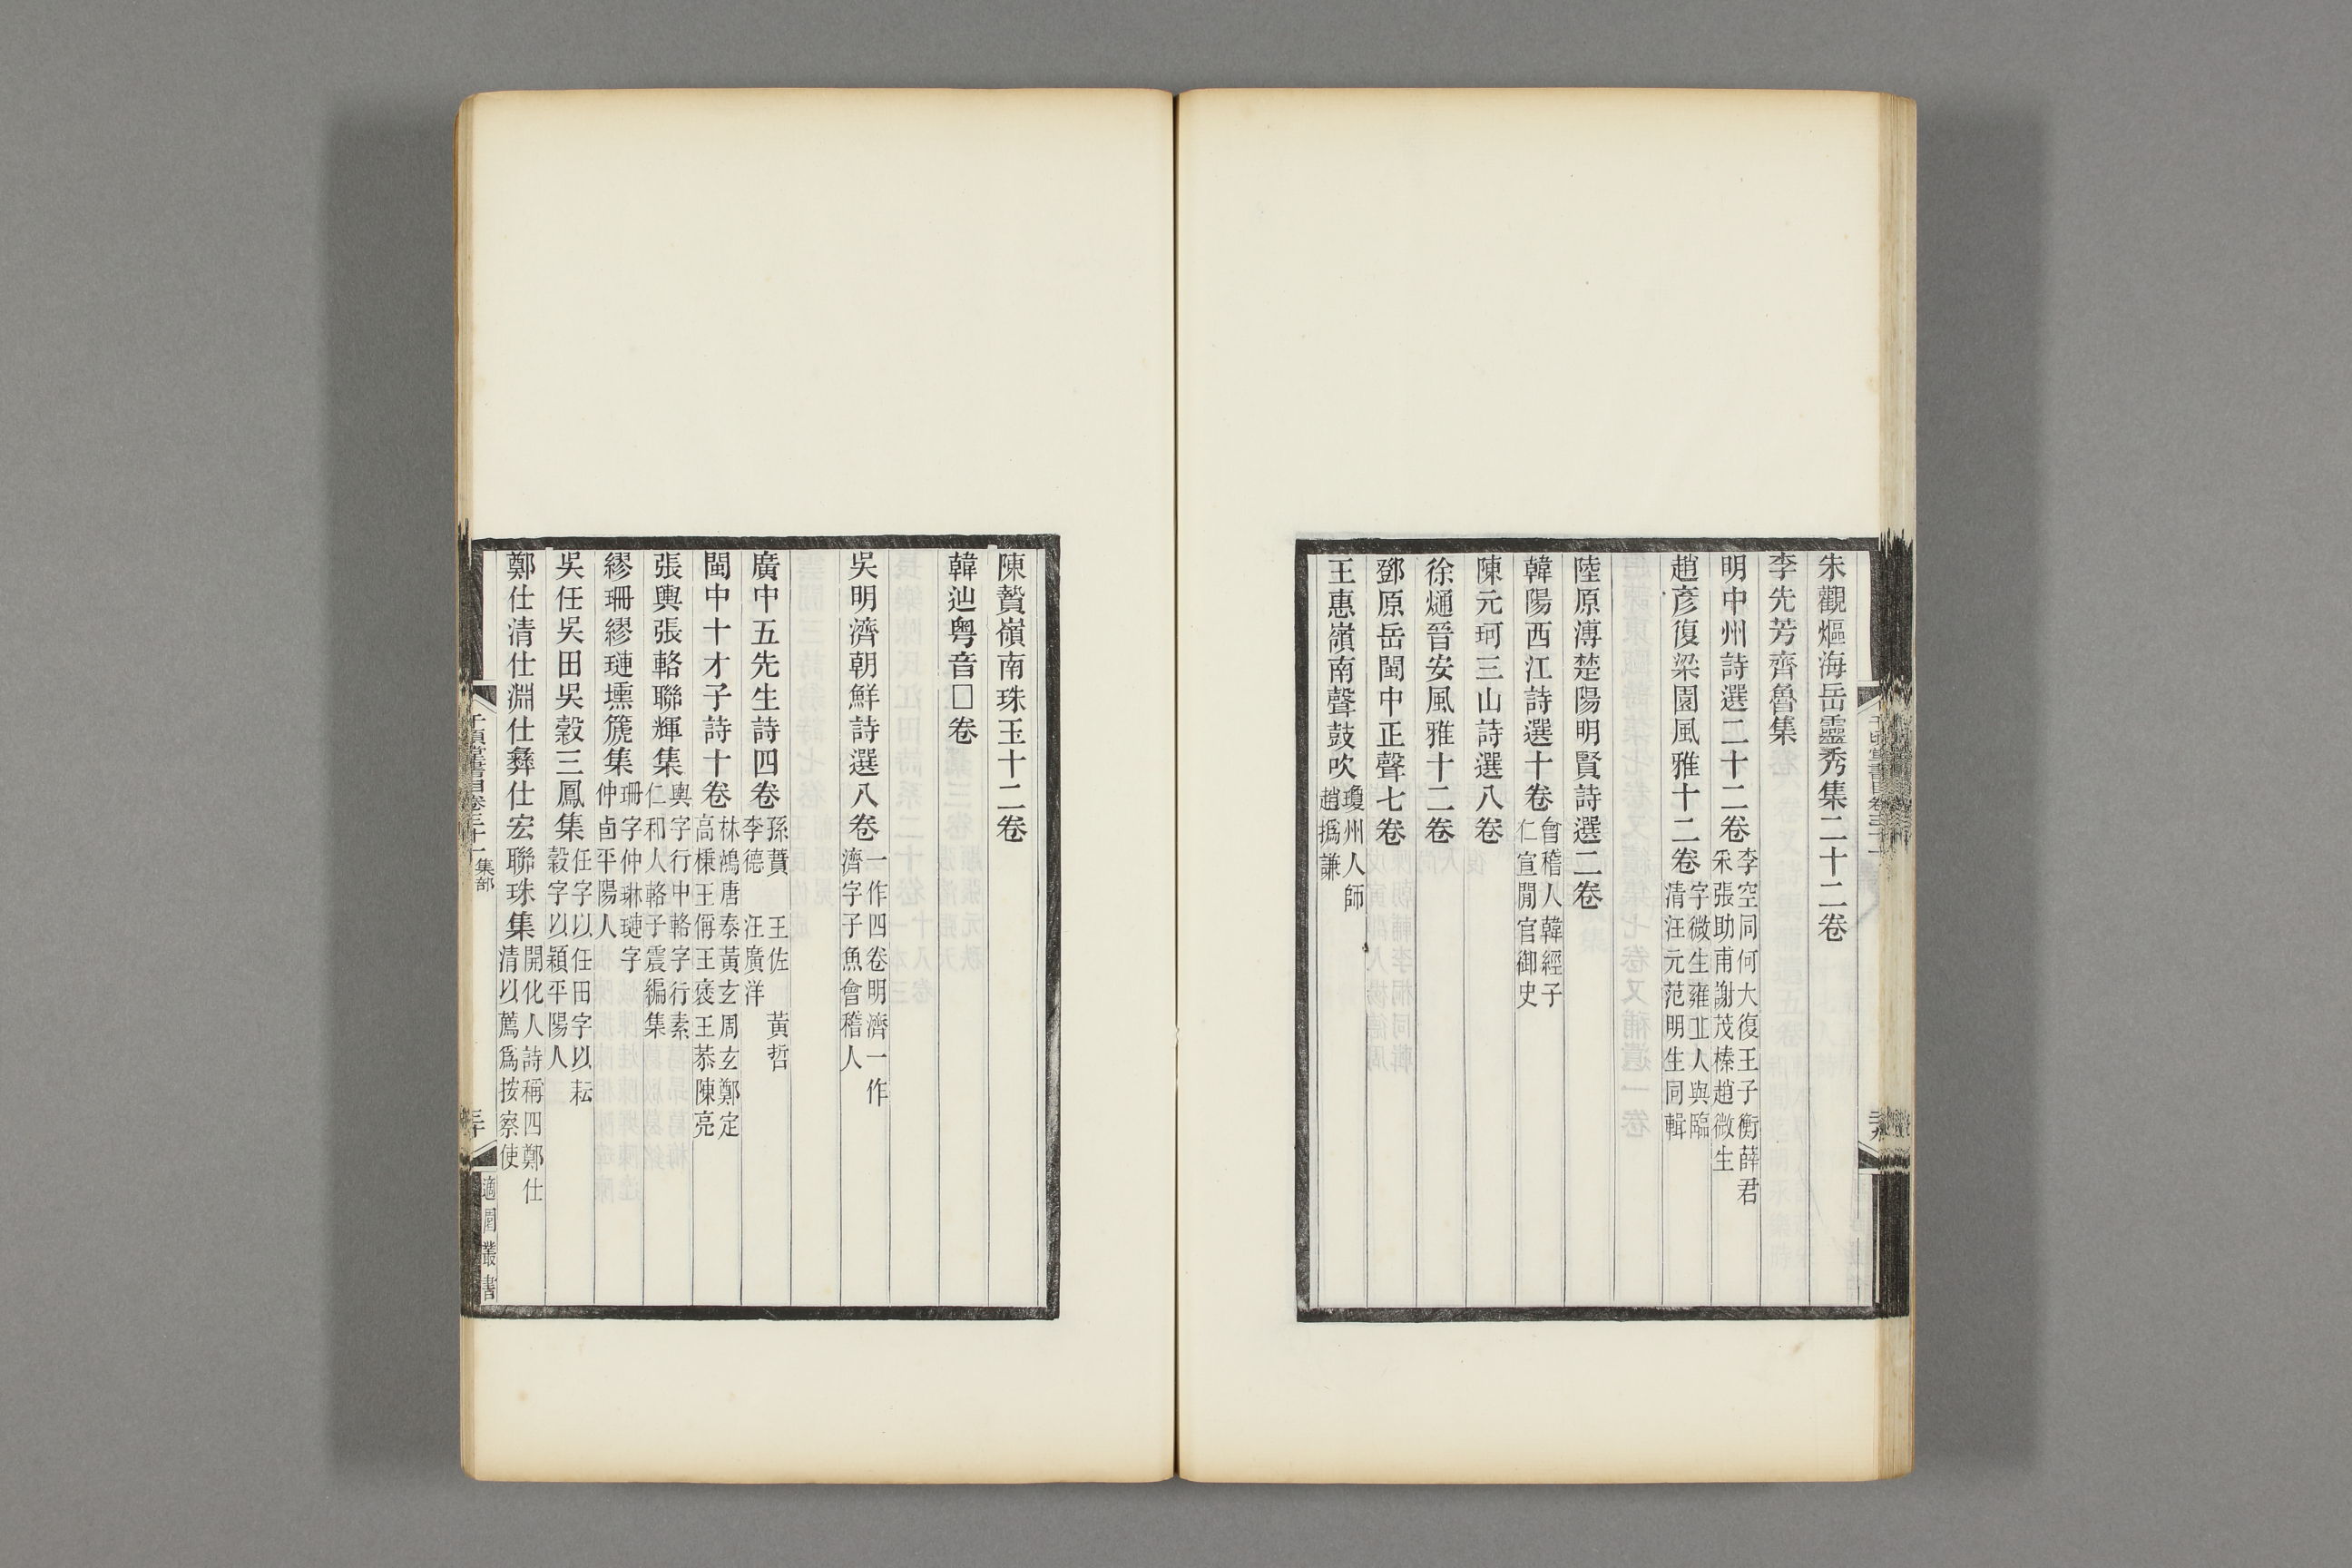 朱觀㷟海岳靈秀集二十二卷
李先芳齊魯集
明中州詩選二十二卷 李空同何大復王子衡薛君采張助甫謝茂榛趙微生
趙彥復梁園風雅十二卷 字微生雍丘人與臨清汪元范明生同輯
陸原溥楚陽明賢詩選二卷
韓陽西江詩選十卷 會稽人韓經子仁宣閒官御史
陳元珂三山詩選八卷
徐熥晉安風雅十二卷
鄧原岳閩中正聲七卷
王惠嶺南聲鼓吹 瓊州人師趙撝謙
陳贄嶺南珠玉十二卷
韓辿粤音□卷
吳明濟朝鮮詩選八卷 一作四卷明濟一作濟字子魚會稽人
廣中五先生詩四卷 孫蕡 王佐 黃哲 李德 汪廣洋
閩中十才子詩十卷 林鴻唐泰黃玄周玄鄭定高棅王偁王褒王恭陳亮
張輿張輅聯輝集 輿字行中輅字行素仁和人輅子震編集
繆珊繆璉壎箎集 珊字仲琳璉字仲卣平陽人
吳任吳田吳穀三鳳集 任字以任田字以耘穀字以穎平陽人
鄭仕清仕淵仕彝仕宏聯珠集 開化人詩稱四鄭仕清以薦爲按察使
千頃堂書目卷三十一 集部
三十
適園叢書